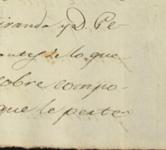 iranda y D. Pe-
antes de lo que
sobre compo-
que le perte-